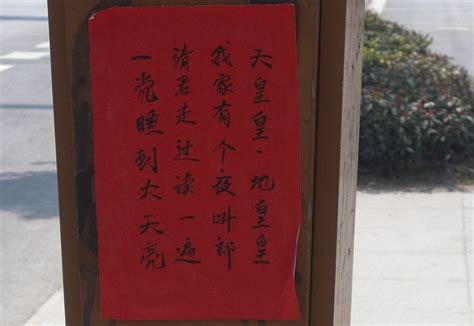 天皇皇·地皇皇
我家有个夜叫郎
请君走过读一遍
一觉睡到大天亮